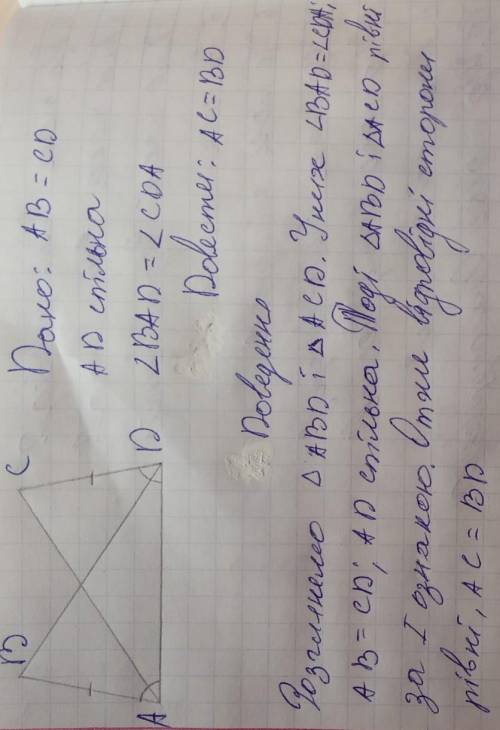 Дано: AB = CD
AD спільна
∠BAD = ∠CDA
Довести: AC = BD
B
C
A
D
Доведення
Розглянемо △ABD і △ACD. У них ∠BAD = ∠CDA;
AB = CD; AD спільна. Тоді △ABD і △ACD рівні
за I ознакою. Отже відповідні сторони
рівні, AC = BD